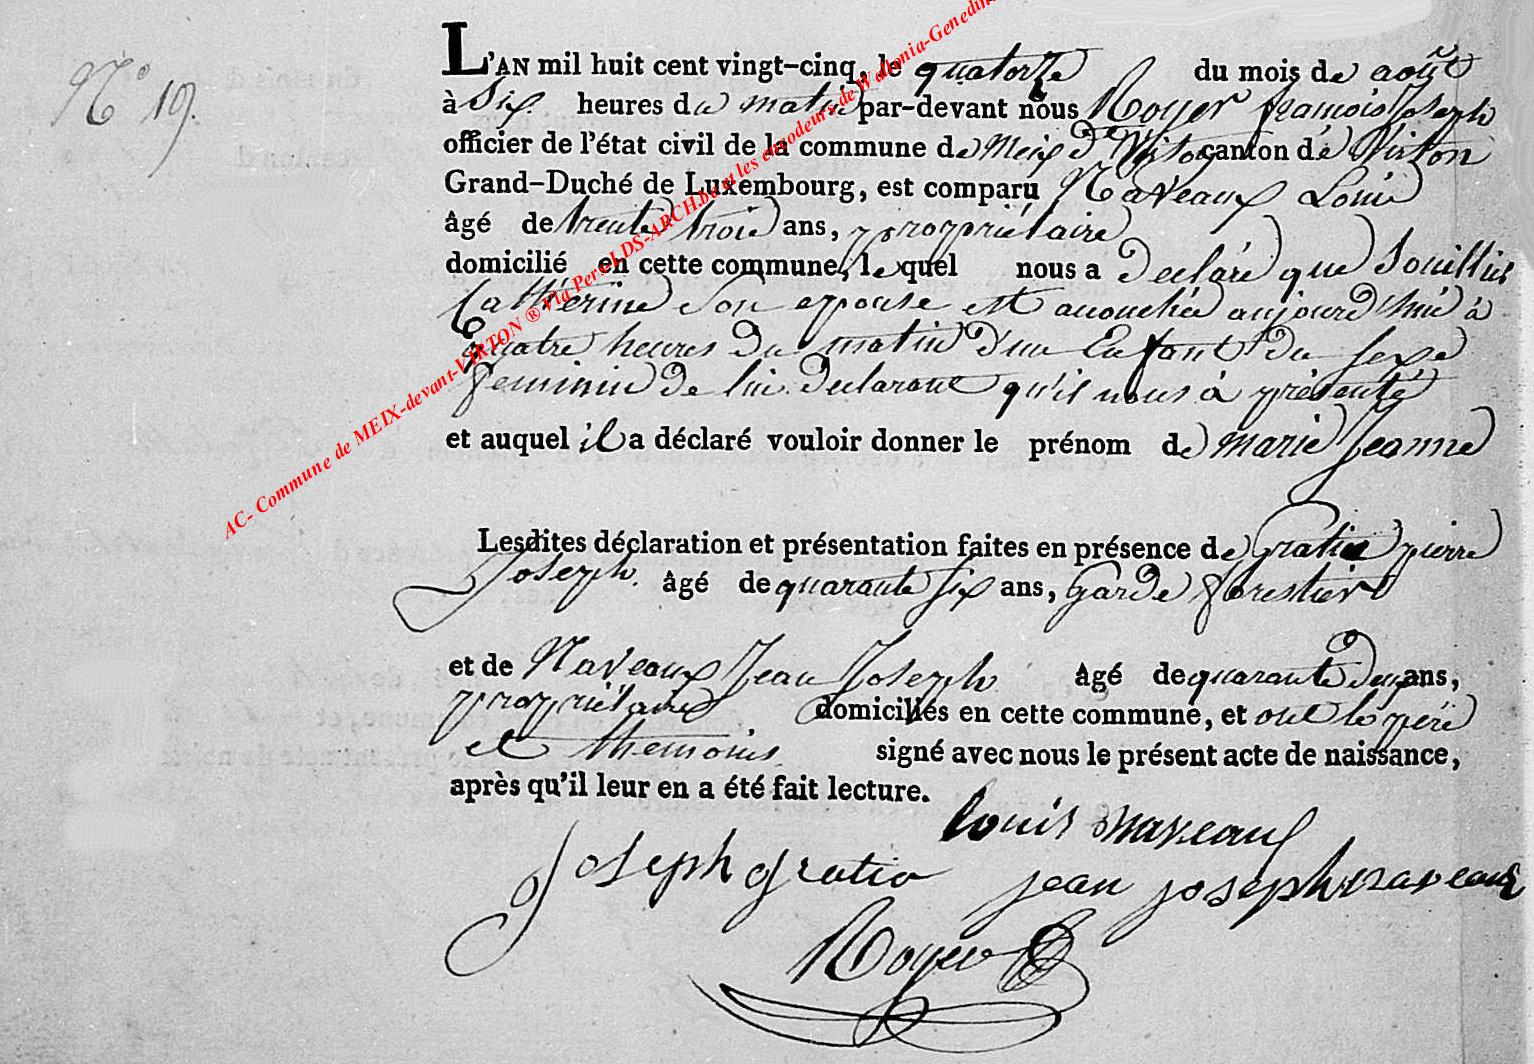 N.° 19.
L'AN mil huit cent vingt-cinq, le quatorze du mois de août
à Six heures du matin par-devant nous Royer françois Joseph
officier de l'état civil de la commune de Meix dt Virton canton de Virton
Grand-Duché de Luxembourg, est comparu Naveaux Louis
âgé de trente trois ans, propriétaire
domicilié en cette commune, lequel nous a declaré que Souillié
Catherine Son epouse est acouchée aujourd'hui à
quatre heures du matin d'un Enfant du sexe
feminin de lui declarant qu'il nous à présenté
et auquel il a déclaré vouloir donner le prénom de marie Jeanne
Lesdites déclaration et présentation faites en présence de Gratia pierre
Joseph. âgé de quarante six ans, Garde forestier
et de Naveaux Jean Joseph âgé de quarante deux ans,
propriétaire domiciliés en cette commune, et ont le père
et themoins. signé avec nous le présent acte de naissance,
après qu'il leur en a été fait lecture.
louis naveaux
Joseph gratia jean joseph naveaux
Royer
AC- Commune de MEIX-devant-VIRTON ® Via Pers LDS-ARCH.be et les encodeurs de Wallonia-Genedin